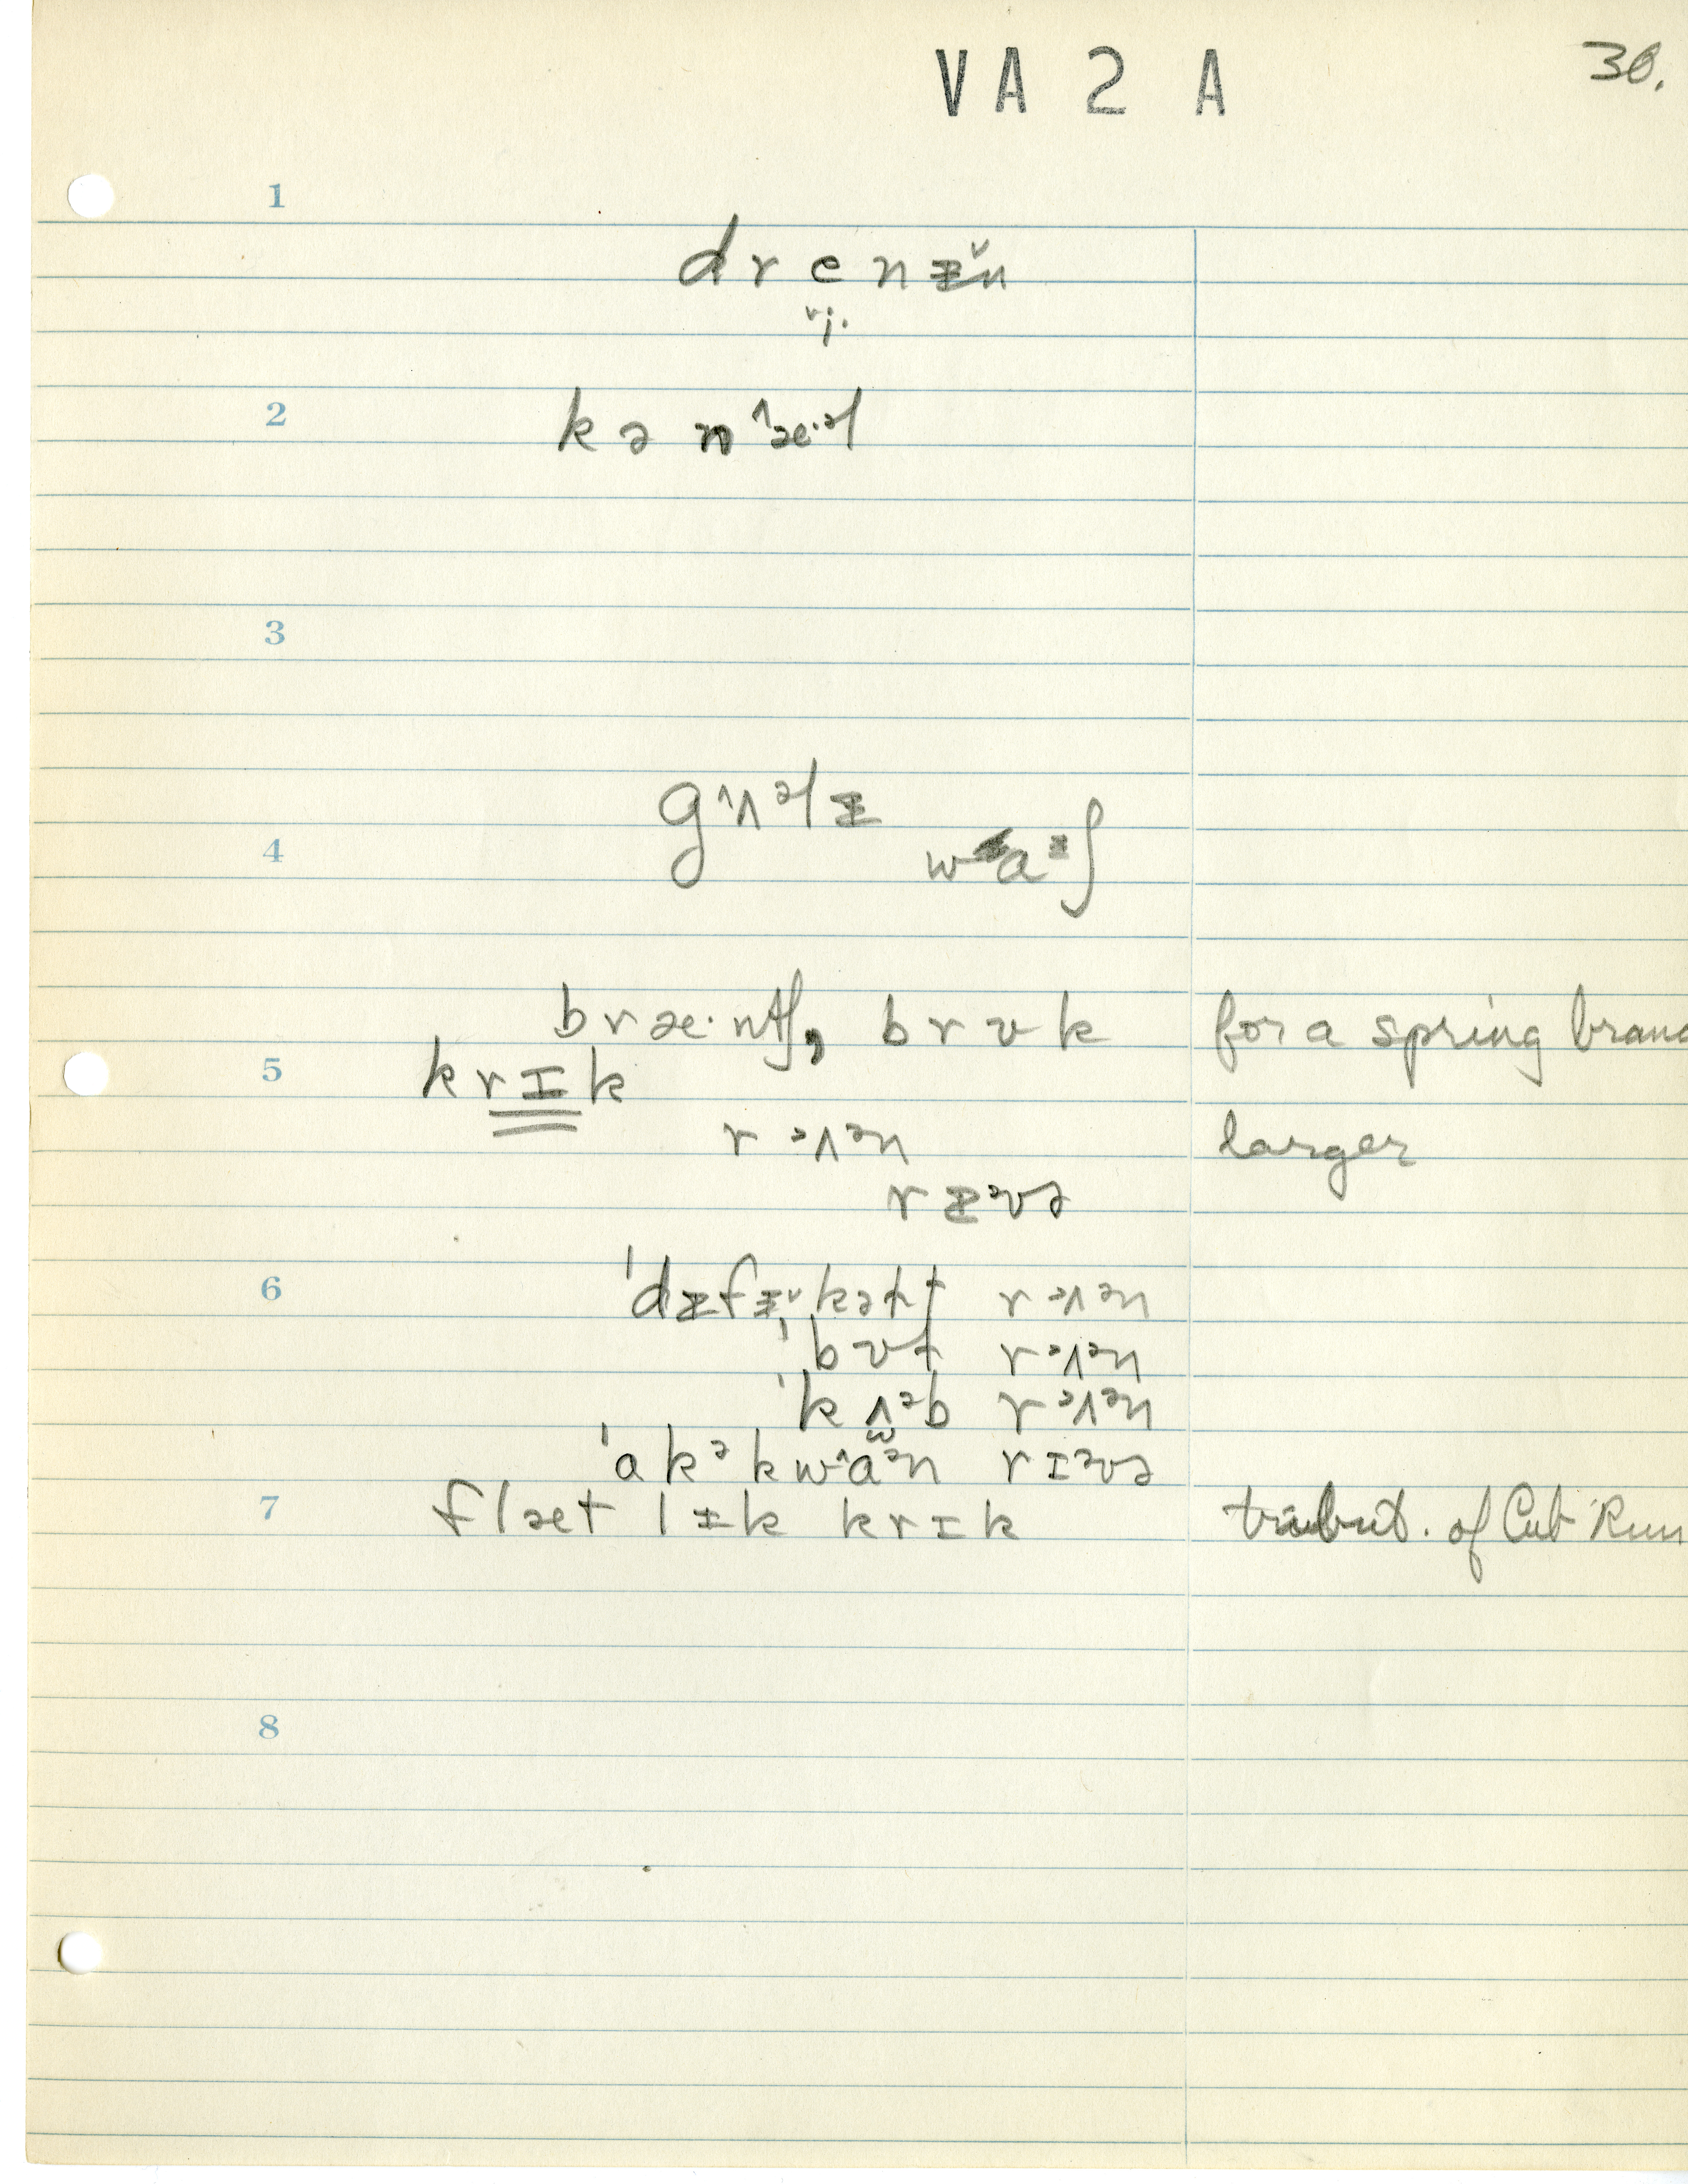 VA 2 A
30.
1
drenɨ̆n
vj.
2
kən^æ·əl
3
g^ʌəlɨ
4
waᵊʃ
bræ·ntʃ, brʊk for a spring branc
5
krɪk
rəʌən larger
rɨəvə
6
ˈdɨfɨkəlt rəʌən
ˈbʊt rəʌən
ˈkʌəb rəʌən
ˈakəkwɑən rɪəvə
7
flæt lɨk krɪk tribut. of Cub Run
8